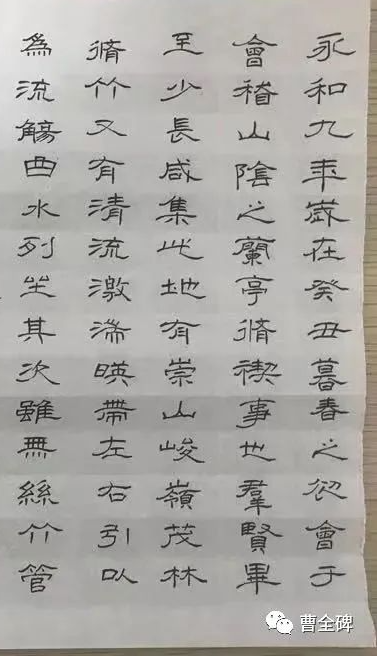 永和九年歲在癸丑暮春之初會于
會稽山陰之蘭亭脩禊事也羣賢畢
至少長咸集此地有崇山峻嶺茂林
脩竹又有清流激湍暎帶左右引以
為流觴曲水列坐其次雖無絲竹管
曹全碑